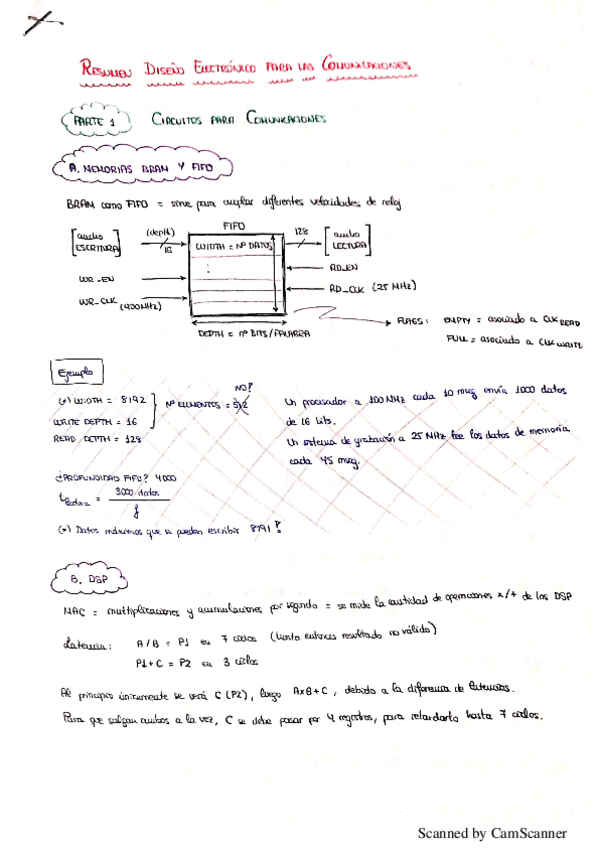 RESUMEN DISEÑO ELECTRÓNICO PARA LAS COMUNICACIONES
PARTE 1 CIRCUITOS PARA COMUNICACIONES
A. MEMORIAS BRAM Y FIFO
BRAM como FIFO = sirve para acoplar diferentes velocidades de reloj
FIFO
[ancho ESCRITURA] (depth) 16 WIDTH = Nº DATOS 128 [ancho LECTURA]
WR_EN RD_EN
WR_CLK (400MHz) RD_CLK (25 MHz)
DEPTH = nº BITS/PALABRA
FLAGS: EMPTY = asociado a CLK READ
FULL = asociado a CLK WRITE
Ejemplo
(*) WIDTH = 8192
WRITE DEPTH = 16
READ DEPTH = 128
Nº ELEMENTOS = 512 NO!
Un procesador a 100MHz cada 10 mseg envía 1000 datos
de 16 bits.
Un sistema de grabación a 25 MHz lee los datos de memoria
cada 45 mseg.
¿PROFUNDIDAD FIFO? 4000
= 3000 datos / f
(*) Datos máximos que se pueden escribir 8191!
B. DSP
MAC = multiplicaciones y acumulaciones por segundo = se mide la cantidad de operaciones x/+ de los DSP
Latencia: A/B = P1 en 7 ciclos (hasta entonces resultado no válido)
P1+C = P2 en 3 ciclos
Al principio únicamente se verá C (P2), luego AxB+C, debido a la diferencia de latencias.
Para que salgan ambos a la vez, C se debe pasar por 4 registros, para retardarlo hasta 7 ciclos.
Scanned by CamScanner